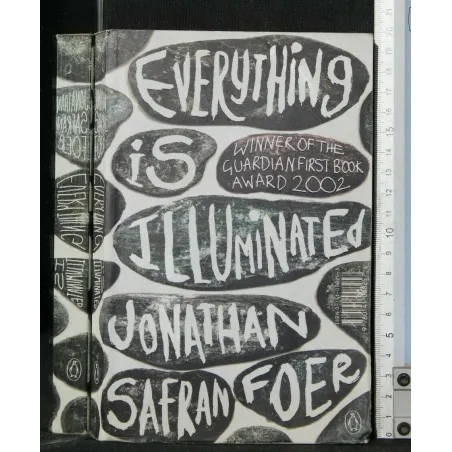 EVERYTHING
iS
WINNER OF THE
GUARDIAN FIRST BOOK
AWARD 2002
ILLUMiNATEd
JONATHAN
SAFRAN FOER
JONATHAN
SAFRAN
FOER
EVERYTHING
IS
ILLUMINATED